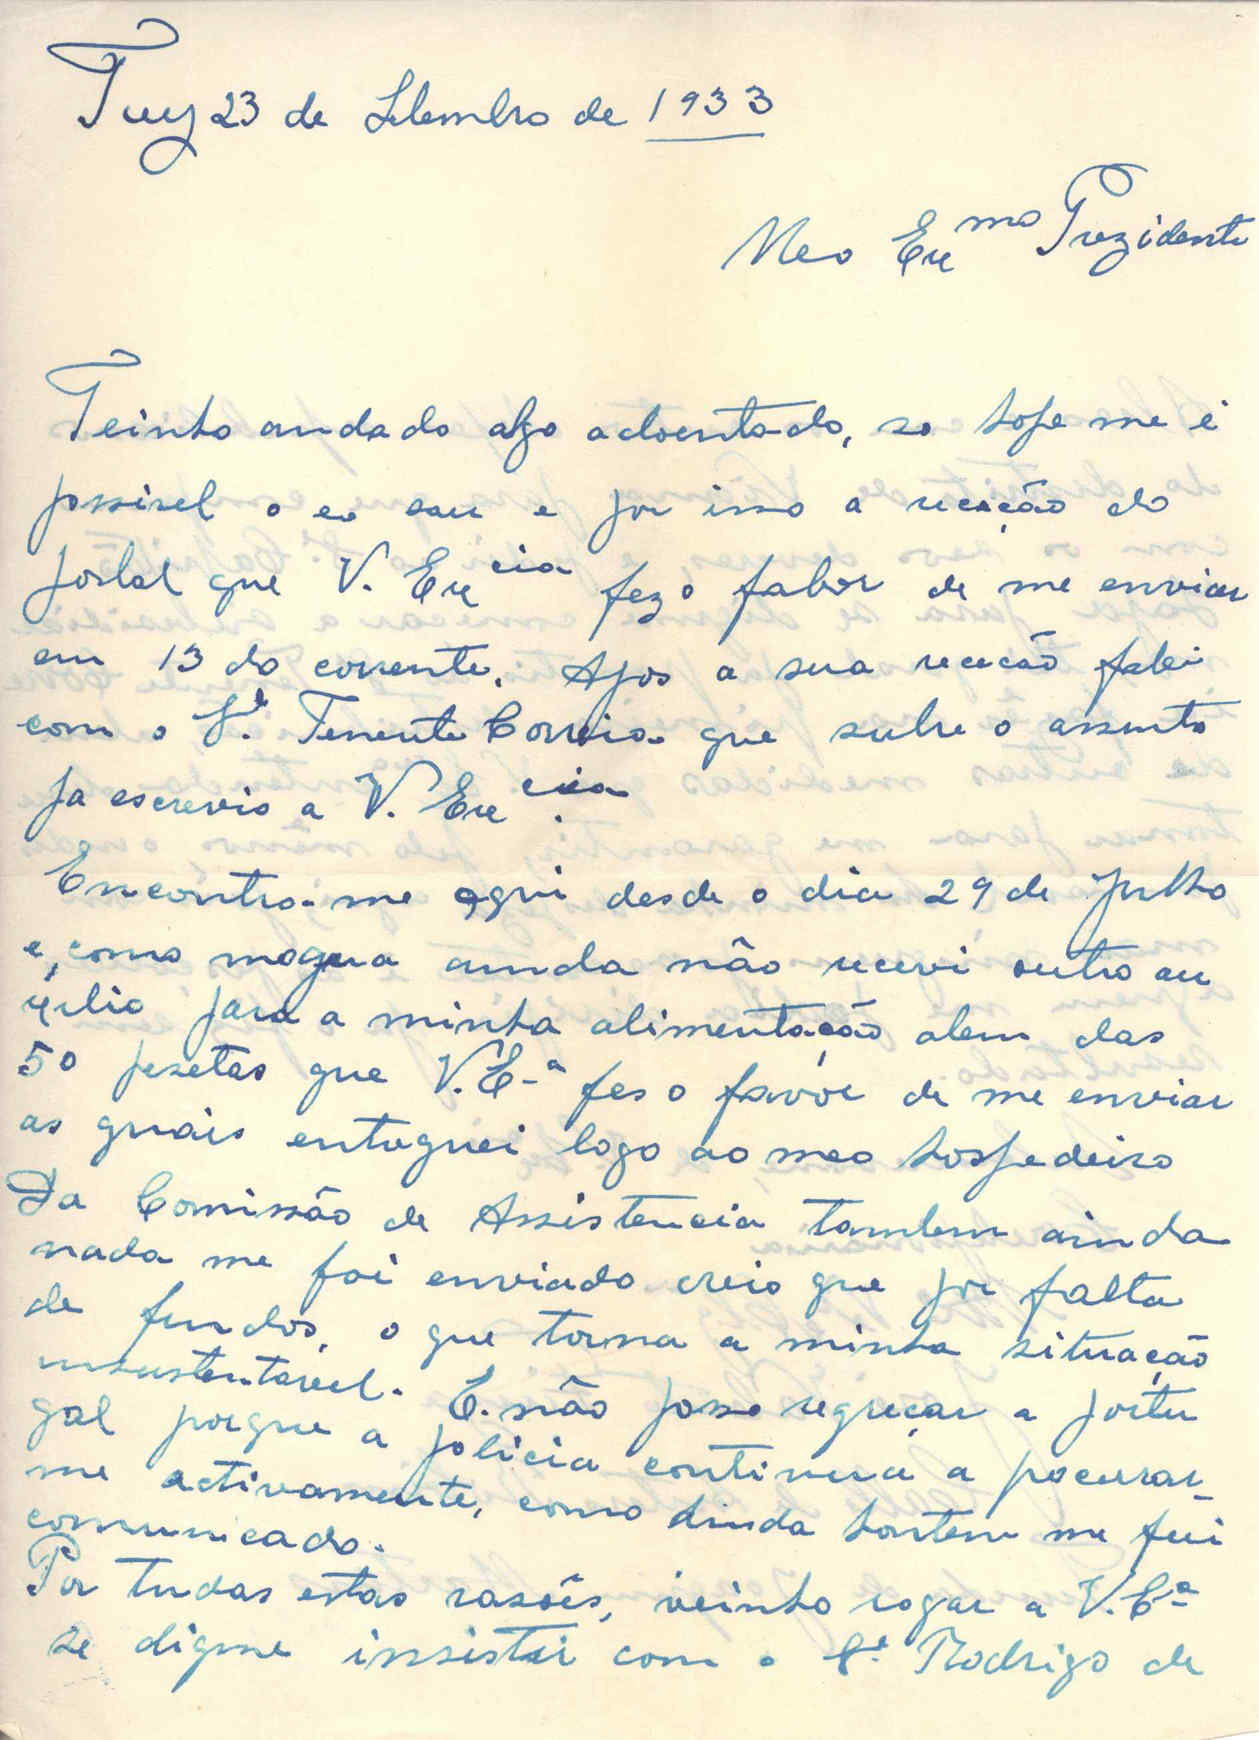 Tuy 23 de Setembro de 1933
Meo Exmo Prezidente
Teinho andado algo adoentado, so hoje me é
possivel o e por isso a receção do
postal que V. Excia fez o fabor de me enviar
em 13 do corrente. Apos a sua receção falei
com o Sr. Tenente Correia que subre o assunto
ja escrevio a V. Excia.
Encontro-me aqui desde o dia 29 de Julho
e, como magua ainda não recevi outro au
xilio para a minha alimentação alem das
50 pesetas que V. Eª fes o favôr de me enviar
as quais entreguei logo ao meo hospedeiro
Da Comissão de Assistencia tambem ainda
nada me foi enviado creio que por falta
de fundos, o que torna a minha situação
insustentavel. E. não posso regreçar a Portu
gal porque a policia continua a pocurar-
me activamente, como hinda hontem me fui
comunicado.
Por tudas estas rasoês, veinho rogar a V. Eª
se digne insistir com o Sr. Rodrigo de